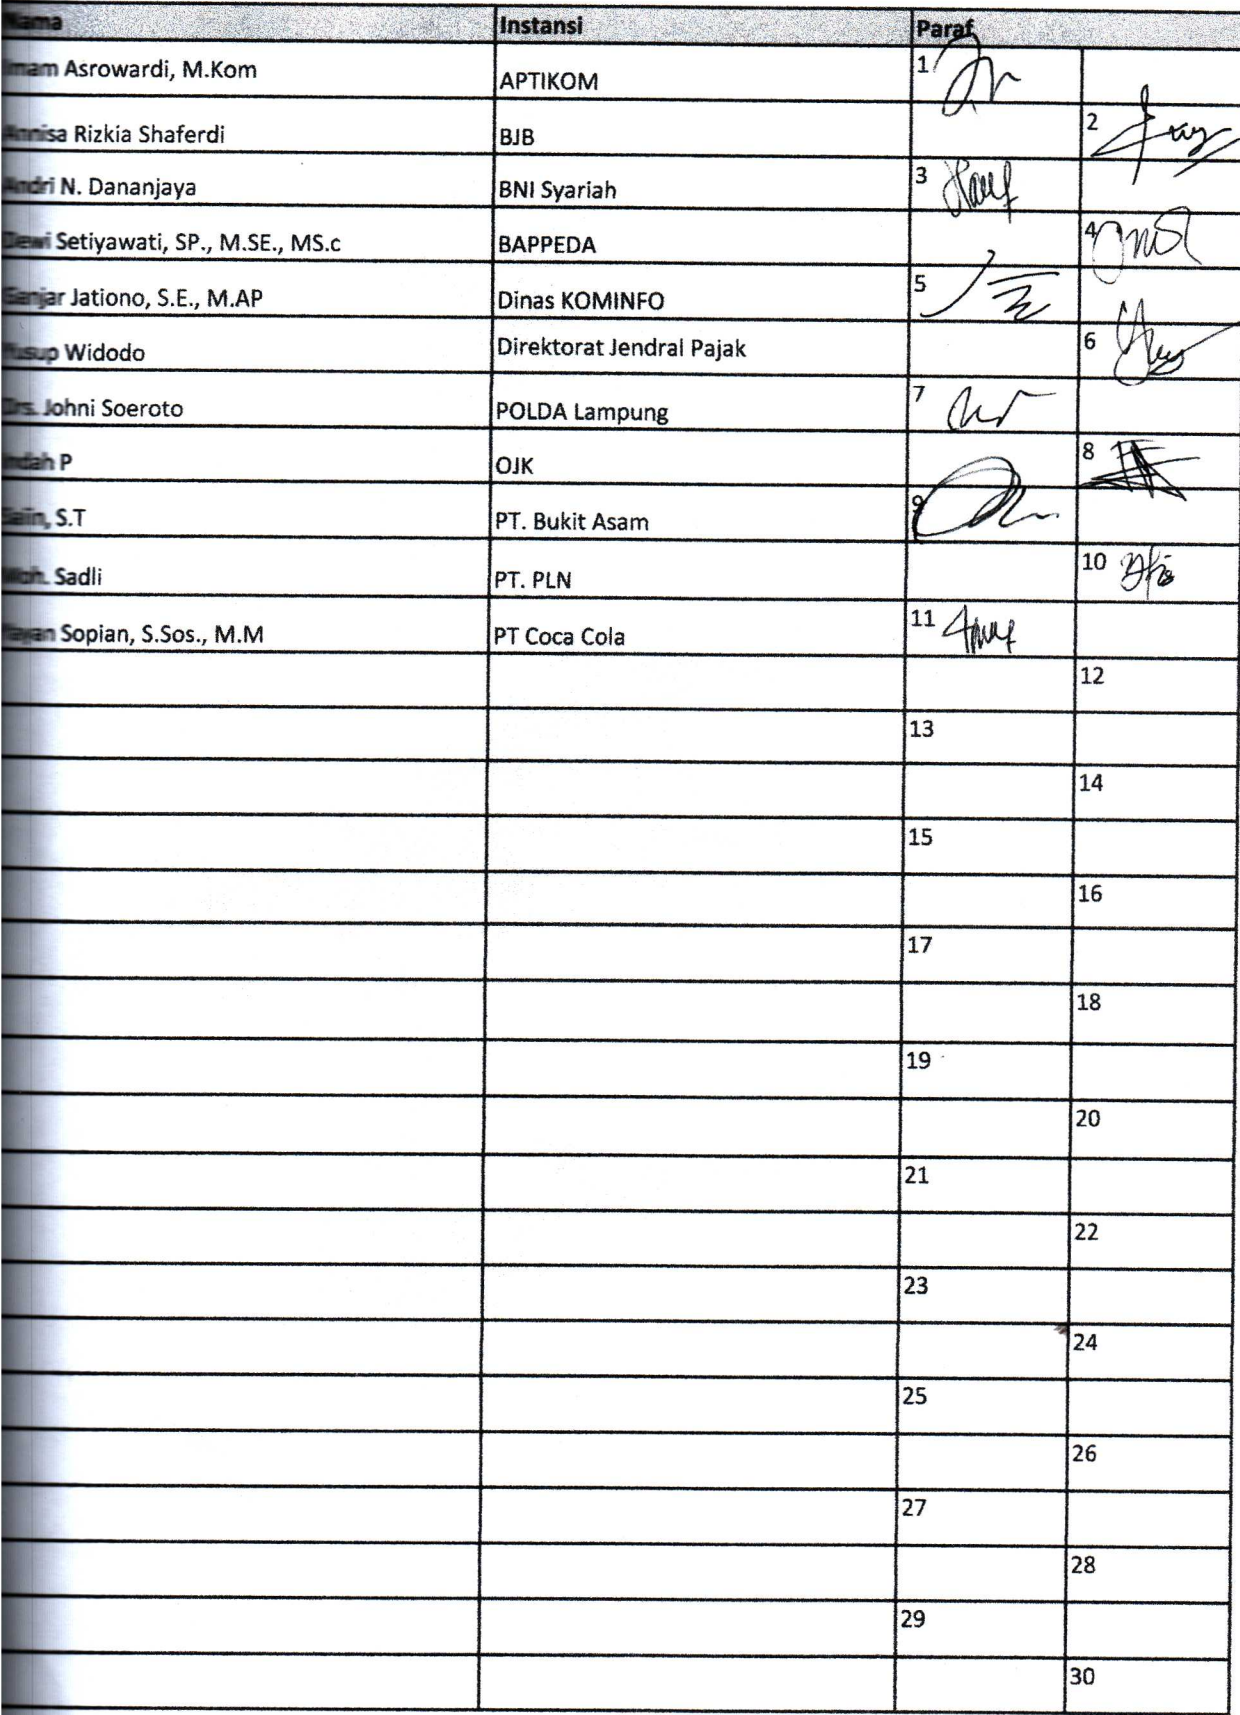 Nama Instansi Paraf
Imam Asrowardi, M.Kom APTIKOM 1
Annisa Rizkia Shaferdi BJB 2
Andri N. Dananjaya BNI Syariah 3
Dewi Setiyawati, SP., M.SE., MS.c BAPPEDA 4
Ganjar Jationo, S.E., M.AP Dinas KOMINFO 5
Yusup Widodo Direktorat Jendral Pajak 6
Drs. Johni Soeroto POLDA Lampung 7
Indah P OJK 8
S.T PT. Bukit Asam 9
Moh. Sadli PT. PLN 10
Sopian, S.Sos., M.M PT Coca Cola 11
12
13
14
15
16
17
18
19
20
21
22
23
24
25
26
27
28
29
30